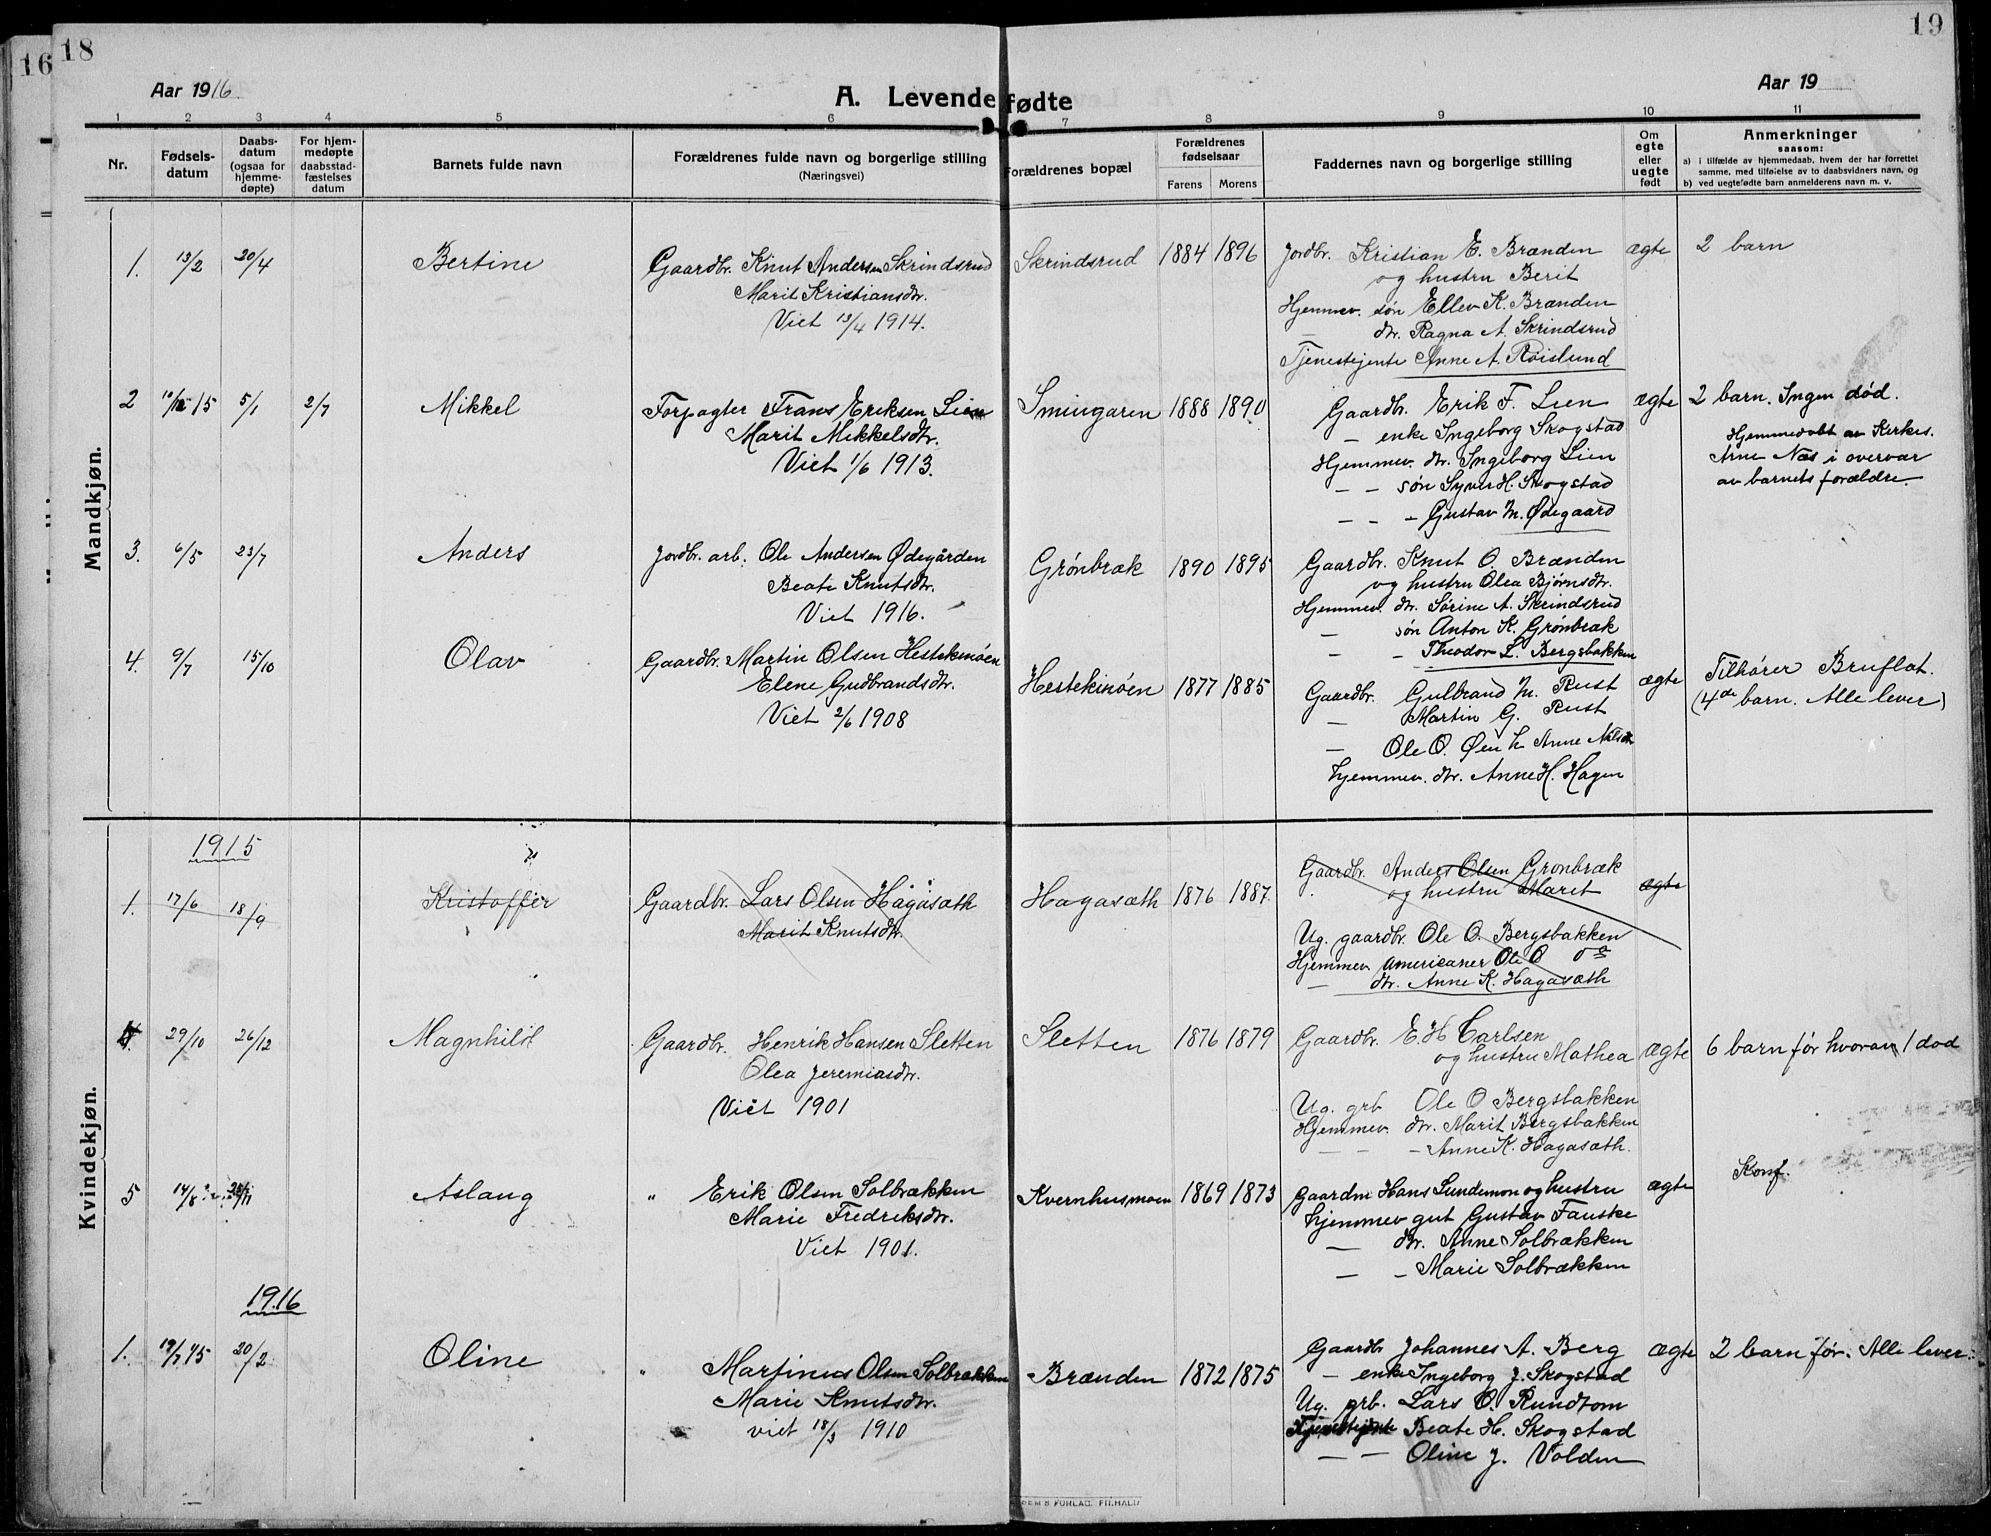 16
18
19
Aar 1916.
A. Levendefødte
Aar 19
1 2 3 4 5 6 7 8 9 10 11
Nr.
Fødsels-
datum
Daabs-
datum
(ogsaa for
hjemme-
døpte)
For hjem-
medøpte
daabsstad-
fæstelses
datum
Barnets fulde navn
Forældrenes fulde navn og borgerlige stilling
(Næringsvei)
Forældrenes bopæl
Forældrenes
fødselsaar
Farens Morens
Faddernes navn og borgerlige stilling
Om
egte
eller
uegte
født
Anmerkninger
saasom:
a) i tilfælde av hjemmedaab, hvem der har forrettet
samme, med tilføielse av to daabsvidners navn, og
b) ved uegtefødte barn anmelderens navn m. v.
Mandkjøn.
1. 13/2 20/4 Bertine
Gaardbr. Knut Andersen Skrindsrud
Marit Kristiansdtr.
Viet 13/4 1914.
Skrindsrud 1884 1896
Jordbr. Kristian E. Brænden
og hustru Berit
Hjemmev. søn Ellev K. Brænden
dtr. Ragna A. Skrindsrud
Tjenestejente Anne A. Røislund
ægte 2 barn
2 10/12 15 5/1 2/7 Mikkel
Forpagter Frans Eriksen Lien
Marit Mikkelsdtr.
Viet 1/6 1913.
Smingaren 1888 1890
Gaardbr. Erik F. Lien
— enke Ingeborg Skogstad
Hjemmev. dtr. Ingeborg Lien
— — søn Syver H. Skogstad
— — - Gustav M. Ødegaard
ægte 2 barn. Ingen død.
Hjemmedøbt av Kirkes.
Arne Næs i overvær
av barnets forældre.
3. 6/5 23/7 Anders
Jordbr. arb. Ole Andersen Ødegården
Beate Knutsdtr.
Viet 1916.
Grønbræk 1890 1895
Gaardbr. Knut O. Brænden
og hustru Olea Bjørnsdtr.
Hjemmev. dtr. Sørine A. Skrindsrud
— søn Anton K. Grønbræk
— - Theodor L. Bergsbakken
4. 9/7 15/10 Olav
Gaardbr. Martin Olsen Hestekinøen
Elene Gudbrandsdtr.
Viet 2/6 1908
Hestekinøen 1877 1885
Gaardbr. Gulbrand M. Rust
— Martin G. Rust
— Ole O. Øen h. Anne Nilsdtr
hjemmev. dtr. Anne H. Hagen
ægte Tilhører Bruflat.
(4de barn. Alle lever)
Kvindekjøn.
1915
1. 17/6 18/9 Kristoffer
Gaardbr. Lars Olsen Hagasæth
Marit Knutsdtr.
Hagasæth 1876 1887.
Gaardbr. Anders Olsen Grønbræk
og hustru Marit
Ug. gaardbr. Ole O. Bergsbakken
Hjemmev. Americaner Ole O
— dtr. Anne K. Hagasæth
ægte
4. 29/10 26/12 Magnhild
Gaardbr. Henrik Hansen Sletten
Olea Jeremiasdtr.
Viet 1901
Sletten 1876 1879
Gaardbr. E. H Carlsen
og hustru Mathea
Ug. grb Ole O Bergsbakken
Hjemmev. dtr. Marit Bergsbakken
— - Anne K. Hagasæth.
ægte 6 barn før hvorav 1 død
5 14/8 28/11 Aslaug
" Erik Olsen Solbrækken
Marie Fredriksdtr.
Viet 1901.
Kvernhusmoen 1869 1873
Gaardm Hans Sundemon og hustru
hjemmev gut Gustav Fauske
— dtr. Anne Solbrækken
— - Marie Solbrækken
ægte Konf.
1916
1. 19/7 15 20/2 Oline
" Martinus Olsen Solbrækken
Marie Knutsdtr.
viet 18/3 1910
Brænden 1872 1875
Gaardbr Johannes A. Berg
— enke Ingeborg J. Skogstad
Ug. grb. Lars O. Rundtom
Tjenestejente Beate H. Skogstad
— — Oline J. Volden
ægte 2 barn før. Alle lever.
FORLAG, FR.HALD